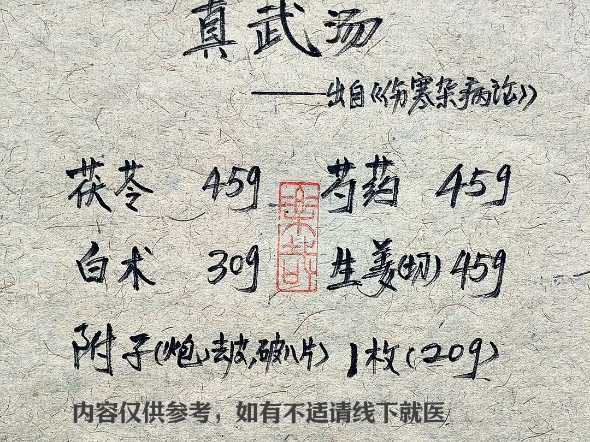 真武汤
——出自《伤寒杂病论》
茯苓 45g 芍药 45g
白术 30g 生姜(切) 45g
附子(炮,去皮,破八片) 1枚(20g)
内容仅供参考，如有不适请线下就医